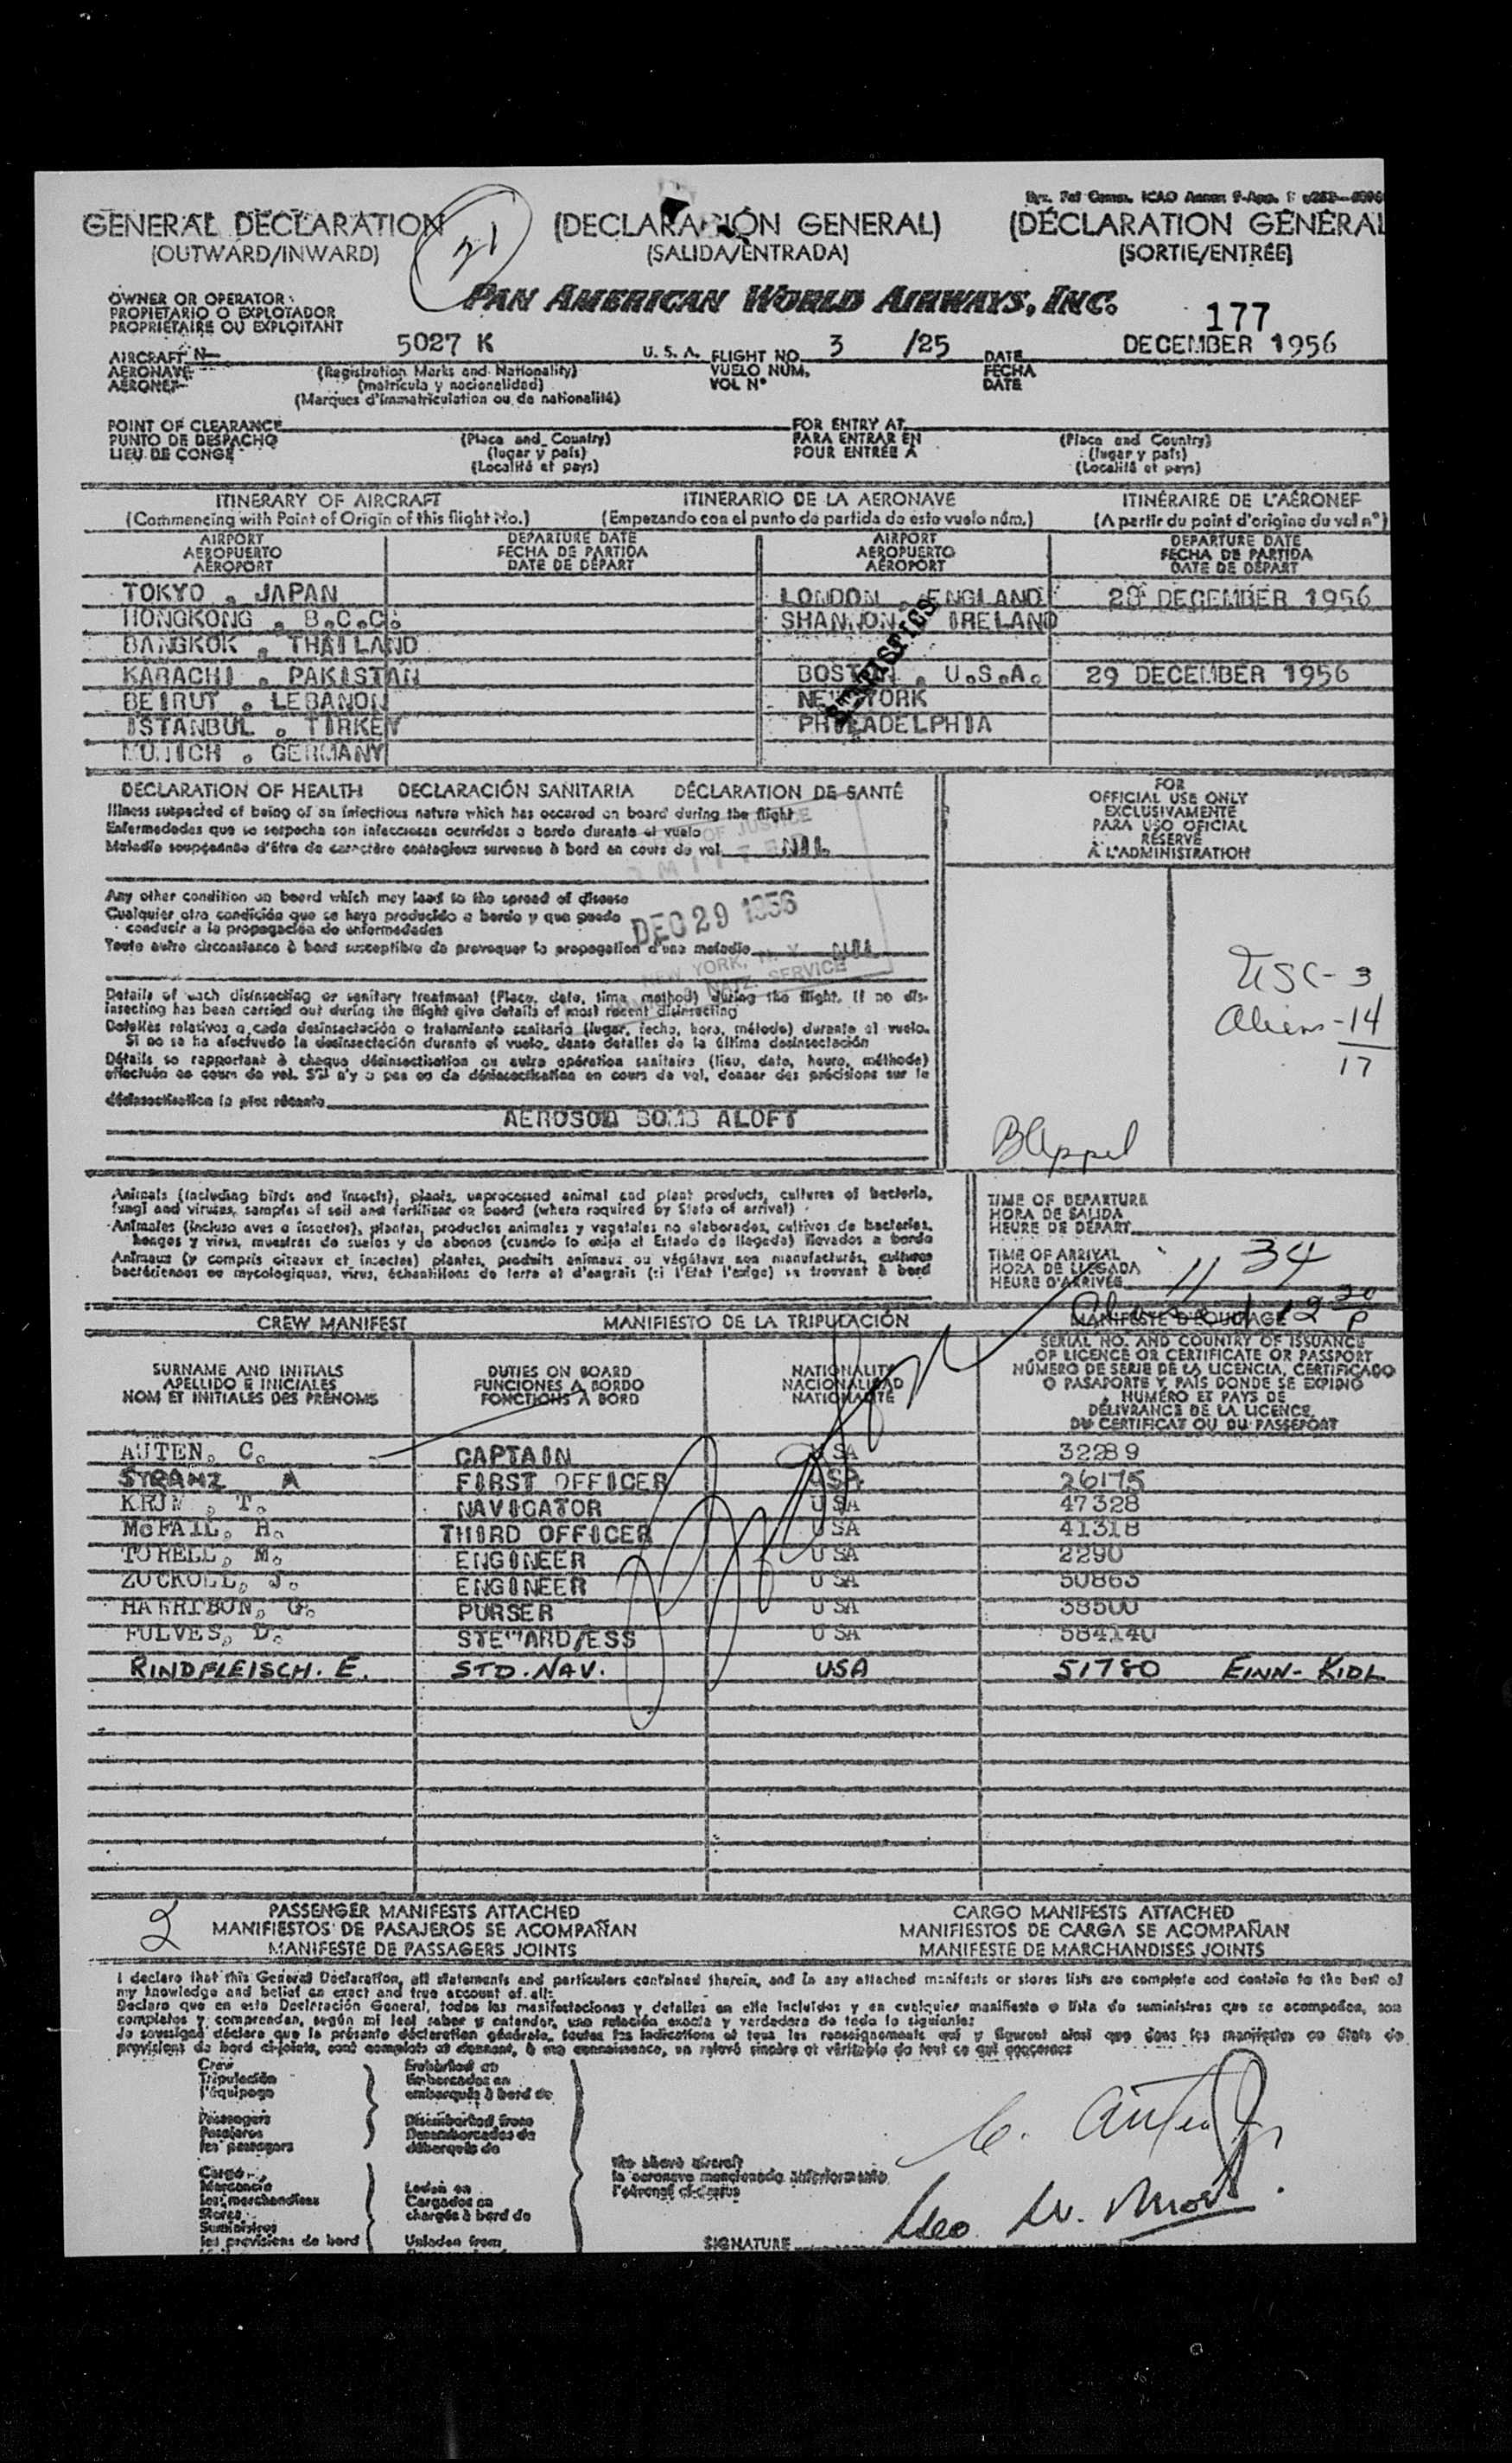 GENERAL DECLARATION (DECLARACIÓN GENERAL) (DÉCLARATION GÉNÉRAL
(OUTWARD/INWARD) (SALIDA/ENTRADA) (SORTIE/ENTRÉE)
21
OWNER OR OPERATOR
PROPIETARIO O EXPLOTADOR
PROPRIÉTAIRE OU EXPLOITANT
PAN AMERICAN WORLD AIRWAYS, INC.
177
AIRCRAFT N 5027 K U. S. A. FLIGHT NO. 3 /25 DATE DECEMBER 1956
AERONAVE (Registration Marks and Nationality) VUELO NÚM. FECHA
AÉRONEF (matrícula y nacionalidad) VOL N° DATE
(Marques d'immatriculation ou de nationalité)
POINT OF CLEARANCE FOR ENTRY AT
PUNTO DE DESPACHO (Place and Country) PARA ENTRAR EN (Place and Country)
LIEU DE CONGÉ (lugar y país) POUR ENTRÉE À (lugar y país)
(Localité et pays) (Localité et pays)
ITINERARY OF AIRCRAFT ITINERARIO DE LA AERONAVE ITINÉRAIRE DE L'AÉRONEF
(Commencing with Point of Origin of this flight No.) (Empezando con el punto de partida de este vuelo núm.) (A partir du point d'origine du vol n°)
AIRPORT DEPARTURE DATE AIRPORT DEPARTURE DATE
AEROPUERTO FECHA DE PARTIDA AEROPUERTO FECHA DE PARTIDA
AÉROPORT DATE DE DÉPART AÉROPORT DATE DE DÉPART
TOKYO , JAPAN LONDON , ENGLAND 28 DECEMBER 1956
HONGKONG , B.C.C. SHANNON, IRELAND
BANGKOK , THAILAND
KARACHI , PAKISTAN BOSTON , U.S.A. 29 DECEMBER 1956
BEIRUT , LEBANON NEW YORK
ISTANBUL , TIRKEY PHILADELPHIA
MUNICH , GERMANY
STATISTICS
DECLARATION OF HEALTH DECLARACIÓN SANITARIA DÉCLARATION DE SANTÉ
Illness suspected of being of an infectious nature which has occured on board during the flight
Enfermedades que se sospecha son infecciosas ocurridas a bordo durante el vuelo
Maladie soupçonnée d'être de caractère contagieux survenue à bord en cours de vol NIL
Any other condition on board which may lead to the spread of disease
Cualquier otra condición que se haya producido a bordo y que puede
conducir a la propagación de enfermedades
Toute autre circonstance à bord susceptible de provoquer la propagation d'une maladie NIL
OF JUSTICE
DEC 29 1956
NEW YORK, N. Y.
NATZ. SERVICE
Details of each disinsecting or sanitary treatment (Place, date, time, method) during the flight. If no dis-
insecting has been carried out during the flight give details of most recent disinsecting
Detalles relativos a cada desinsectación o tratamiento sanitario (lugar, fecha, hora, método) durante el vuelo.
Si no se ha efectuado la desinsectación durante el vuelo, dense detalles de la última desinsectación
Détails se rapportant à chaque désinsectisation ou autre opération sanitaire (lieu, date, heure, méthode)
effectuée en cours de vol. S'il n'y a pas eu de désinsectisation en cours de vol, donner des précisions sur la
désinsectisation la plus récente
AEROSOL BOMB ALOFT
FOR
OFFICIAL USE ONLY
EXCLUSIVAMENTE
PARA USO OFICIAL
RÉSERVÉ
À L'ADMINISTRATION
USC - 3
Aliens - 14
17
BAppel
Animals (including birds and insects), plants, unprocessed animal and plant products, cultures of bacteria,
fungi and viruses, samples of soil and fertiliser on board (where required by State of arrival)
Animales (incluso aves e insectos), plantas, productos animales y vegetales no elaborados, cultivos de bacterias,
hongos y virus, muestras de suelos y de abonos (cuando lo exija el Estado de llegada) llevados a bordo
Animaux (y compris oiseaux et insectes) plantes, produits animaux ou végétaux non manufacturés, cultures
bactériennes ou mycologiques, virus, échantillons de terre et d'engrais (si l'Etat l'exige) se trouvant à bord
TIME OF DEPARTURE
HORA DE SALIDA
HEURE DE DÉPART
TIME OF ARRIVAL
HORA DE LLEGADA
HEURE D'ARRIVÉE 11 34
12 20 P
CREW MANIFEST MANIFIESTO DE LA TRIPULACIÓN MANIFESTE D'ÉQUIPAGE
SURNAME AND INITIALS DUTIES ON BOARD NATIONALITY SERIAL NO. AND COUNTRY OF ISSUANCE
APELLIDO E INICIALES FUNCIONES A BORDO NACIONALIDAD OF LICENCE OR CERTIFICATE OR PASSPORT
NOM ET INITIALES DES PRÉNOMS FONCTIONS À BORD NATIONALITÉ NÚMERO DE SERIE DE LA LICENCIA, CERTIFICADO
O PASAPORTE Y PAÍS DONDE SE EXPIDIÓ
NUMÉRO ET PAYS DE
DÉLIVRANCE DE LA LICENCE,
DU CERTIFICAT OU DU PASSEPORT
AUTEN, C. CAPTAIN USA 32289
STRANZ A FIRST OFFICER USA 26175
KRIM , T. NAVIGATOR USA 47328
McFAIL, H. THIRD OFFICER USA 41318
TORELL, M. ENGINEER USA 2290
ZUCKOLL, J. ENGINEER USA 50863
HARRISON, G. PURSER USA 38500
FULVES, D. STEWARD/ESS USA 584140
RINDFLEISCH. E. STD. NAV. USA 51780 EINN- KIDL
2
PASSENGER MANIFESTS ATTACHED CARGO MANIFESTS ATTACHED
MANIFIESTOS DE PASAJEROS SE ACOMPAÑAN MANIFIESTOS DE CARGA SE ACOMPAÑAN
MANIFESTE DE PASSAGERS JOINTS MANIFESTE DE MARCHANDISES JOINTS
I declare that this General Declaration, all statements and particulars contained therein, and in any attached manifests or stores lists are complete and contain to the best of
my knowledge and belief an exact and true account of all:
Declaro que en esta Declaración General, todas las manifestaciones y detalles en ella incluidos y en cualquier manifiesto o lista de suministros que se acompañen, son
completos y comprenden, según mi leal saber y entender, una relación exacta y verdadera de todo lo siguiente:
Je soussigné déclare que la présente déclaration générale, toutes les indications et tous les renseignements qui y figurent ainsi que dans les manifestes ou états de
provisions de bord ci-joints, sont complets et donnent, à ma connaissance, un relevé sincère et véritable de tout ce qui concerne:
Crew Embarked on
Tripulación Embarcados en
l'équipage embarqués à bord de
Passengers Disembarked from
Pasajeros Desembarcados de
les passagers débarqués de
the above aircraft
la aeronave mencionada anteriormente
l'aéronef ci-dessus
Cargo
Mercancía Laden on
les marchandises Cargados en
Stores chargés à bord de
Suministros
les provisions de bord Unladen from
C. Auten Jr.
SIGNATURE